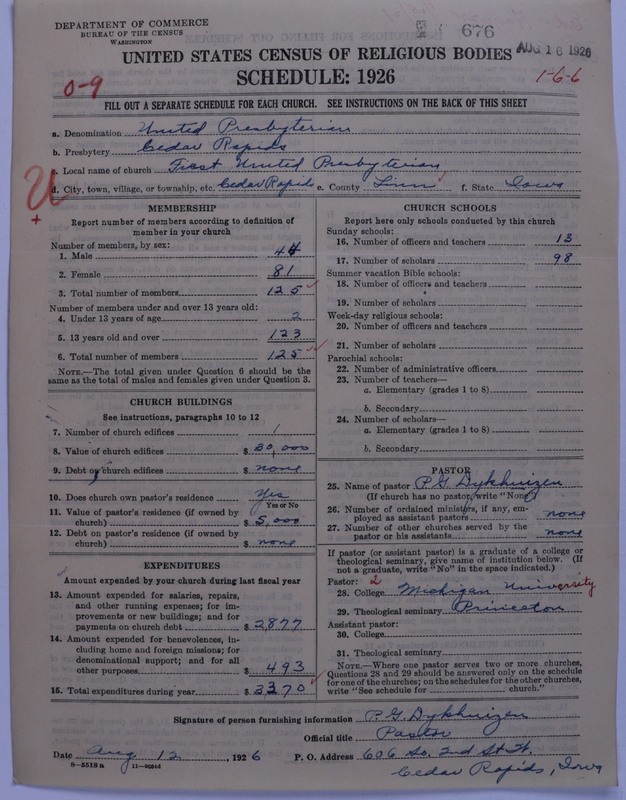 DEPARTMENT OF COMMERCE
BUREAU OF THE CENSUS
WASHINGTON
676
AUG 16 1926
UNITED STATES CENSUS OF RELIGIOUS BODIES
SCHEDULE: 1926
0-9
1-6-6
FILL OUT A SEPARATE SCHEDULE FOR EACH CHURCH. SEE INSTRUCTIONS ON THE BACK OF THIS SHEET
a. Denomination United Presbyterian
b. Presbytery Cedar Rapids
c. Local name of church First United Presbyterian
d. City, town, village, or township, etc. Cedar Rapids e. County Linn f. State Iowa
MEMBERSHIP
Report number of members according to definition of
member in your church
Number of members, by sex:
1. Male 44
2. Female 81
3. Total number of members 125
Number of members under and over 13 years old:
4. Under 13 years of age 2
5. 13 years old and over 123
6. Total number of members 125
NOTE.—The total given under Question 6 should be the
same as the total of males and females given under Question 3.
CHURCH BUILDINGS
See instructions, paragraphs 10 to 12
7. Number of church edifices 1
8. Value of church edifices $ 30,000
9. Debt on church edifices $ none
10. Does church own pastor's residence Yes
Yes or No
11. Value of pastor's residence (if owned by
church) $ 5,000
12. Debt on pastor's residence (if owned by
church) $ none
EXPENDITURES
Amount expended by your church during last fiscal year
13. Amount expended for salaries, repairs,
and other running expenses; for im-
provements or new buildings; and for
payments on church debt $ 2877
14. Amount expended for benevolences, in-
cluding home and foreign missions; for
denominational support; and for all
other purposes $ 493
15. Total expenditures during year $ 3370
CHURCH SCHOOLS
Report here only schools conducted by this church
Sunday schools:
16. Number of officers and teachers 13
17. Number of scholars 98
Summer vacation Bible schools:
18. Number of officers and teachers
19. Number of scholars
Week-day religious schools:
20. Number of officers and teachers
21. Number of scholars
Parochial schools:
22. Number of administrative officers
23. Number of teachers—
a. Elementary (grades 1 to 8)
b. Secondary
24. Number of scholars—
a. Elementary (grades 1 to 8)
b. Secondary
PASTOR
25. Name of pastor P G Dykhuizen
(If church has no pastor, write "None")
26. Number of ordained ministers, if any, em-
ployed as assistant pastors none
27. Number of other churches served by the
pastor or his assistants none
If pastor (or assistant pastor) is a graduate of a college or
theological seminary, give name of institution below. (If
not a graduate, write "No" in the space indicated.)
Pastor: 2
28. College Michigan University
29. Theological seminary Princeton
Assistant pastor:
30. College
31. Theological seminary
NOTE.—Where one pastor serves two or more churches,
Questions 28 and 29 should be answered only on the schedule
for one of the churches; on the schedules for the other churches,
write "See schedule for church."
Signature of person furnishing information P. G. Dykhuizen
Official title Pastor
Date Aug 12, 1926 P. O. Address 606 So. 2nd St. W.
8-5518a
Cedar Rapids, Iowa